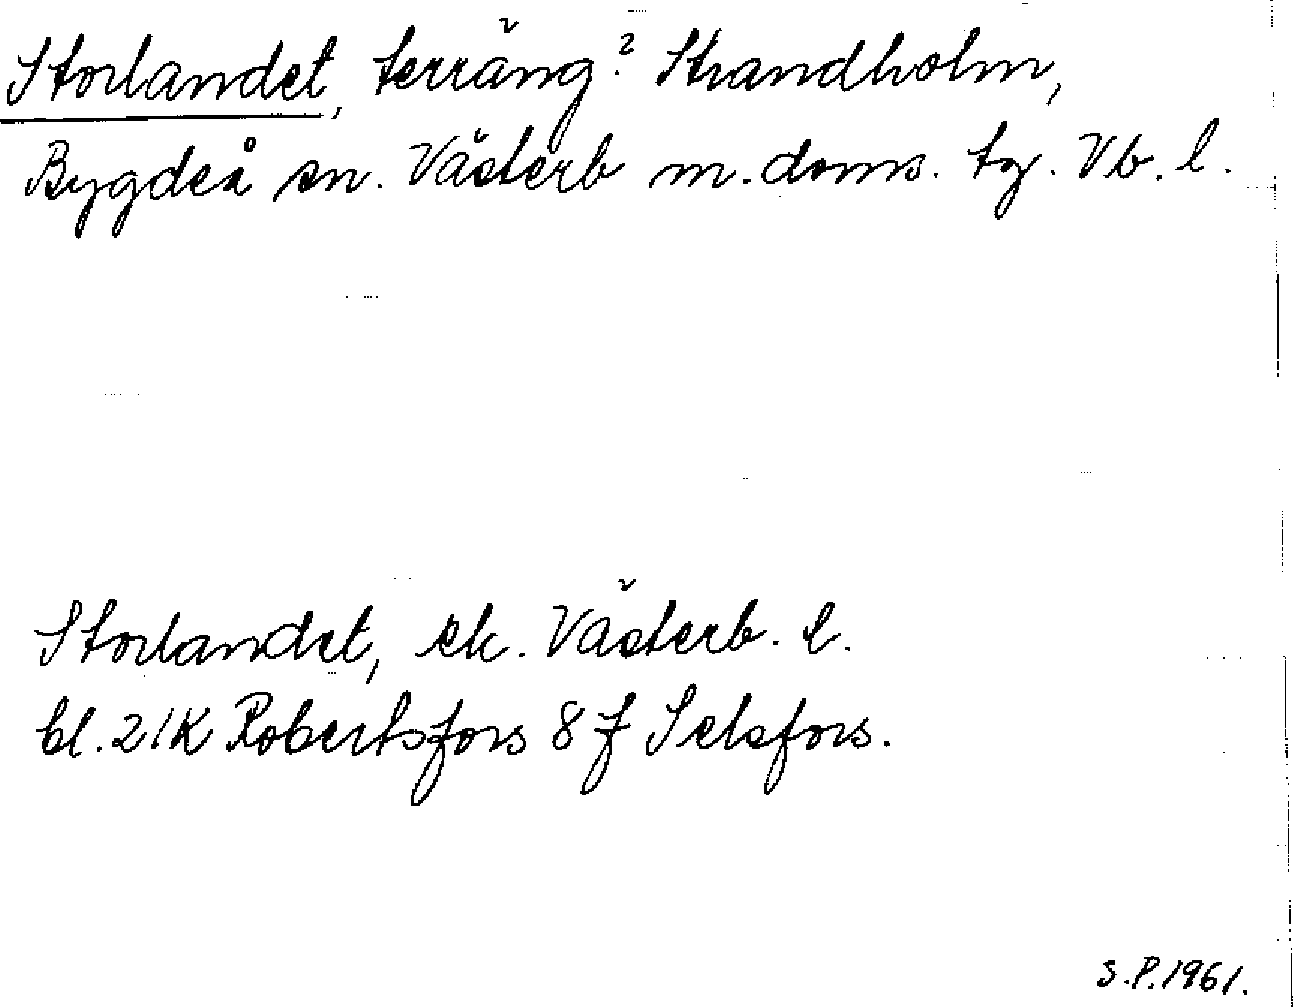 Storlandet, terräng? Strandholm,
Bygdeå sn. Västerb m. doms. tg. Vb. l.
Storlandet, ek. Västerb. l.
bl. 21K Robertsfors 8 f Selsfors.
S.P. 1961.